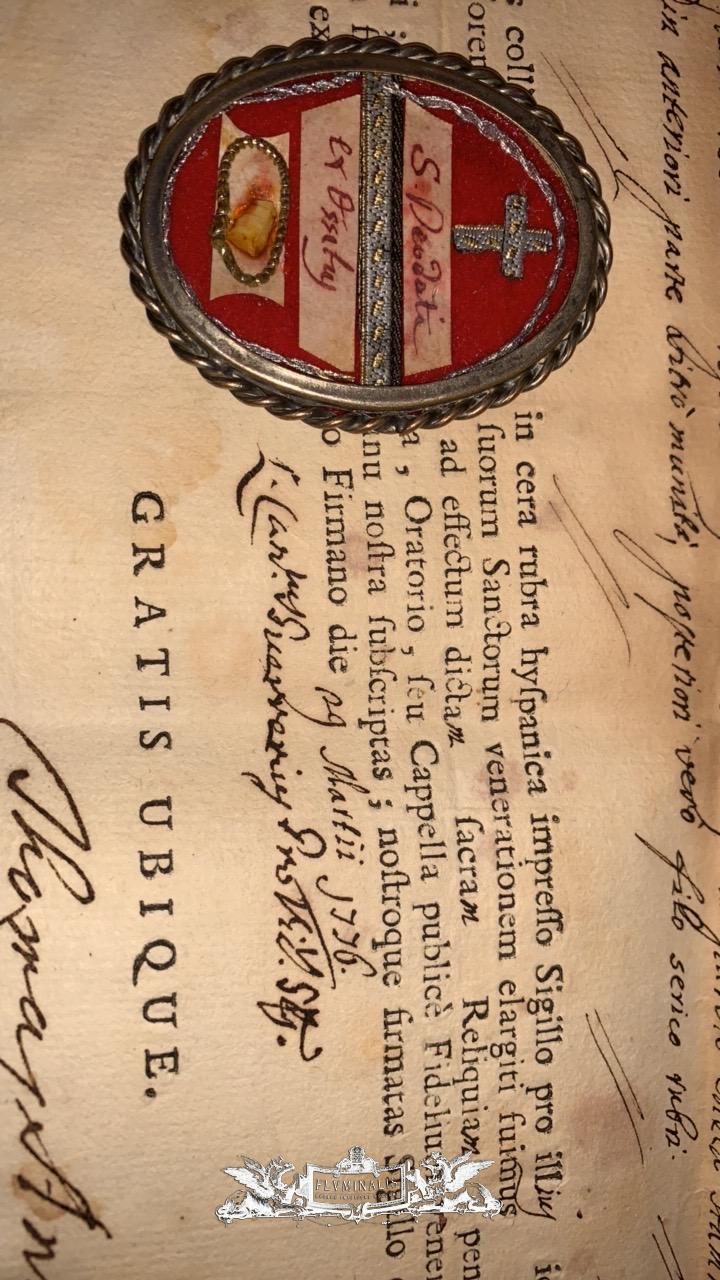 in anteriori parte vitrò munità, posteriori verò filo serico rubri
in cera rubra hyſpanica impreſſo Sigillo pro illius
ſuorum Sanctorum venerationem elargiti fuimus
ad effectum dictam ſacram Reliquiam pen
a, Oratorio, ſeu Cappella publicè Fidelium vene
nu noſtra ſubſcriptas; noſtroque firmatas Sigillo
o Firmano die 29 Martii 1776.
GRATIS UBIQUE.
S. Deodati
Ex Ossibus
FLVMINALIS